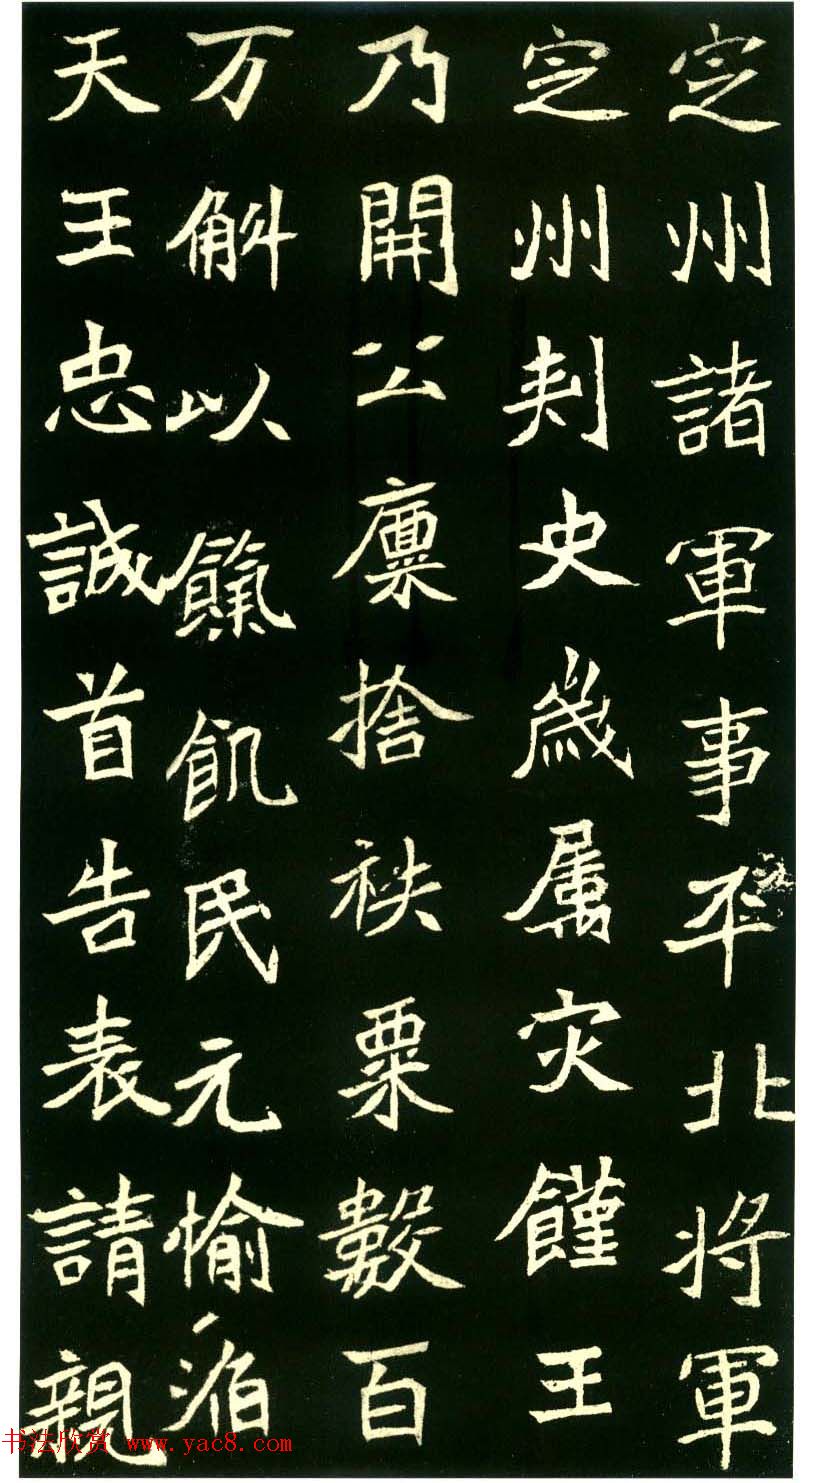 定州諸軍事平北將軍
定州刾史歲属灾饉王
乃開公廪捨袟粟數百
万斛以餼飢民元愉滔
天王忠誠首告表請親
书法欣赏 www.yac8.com